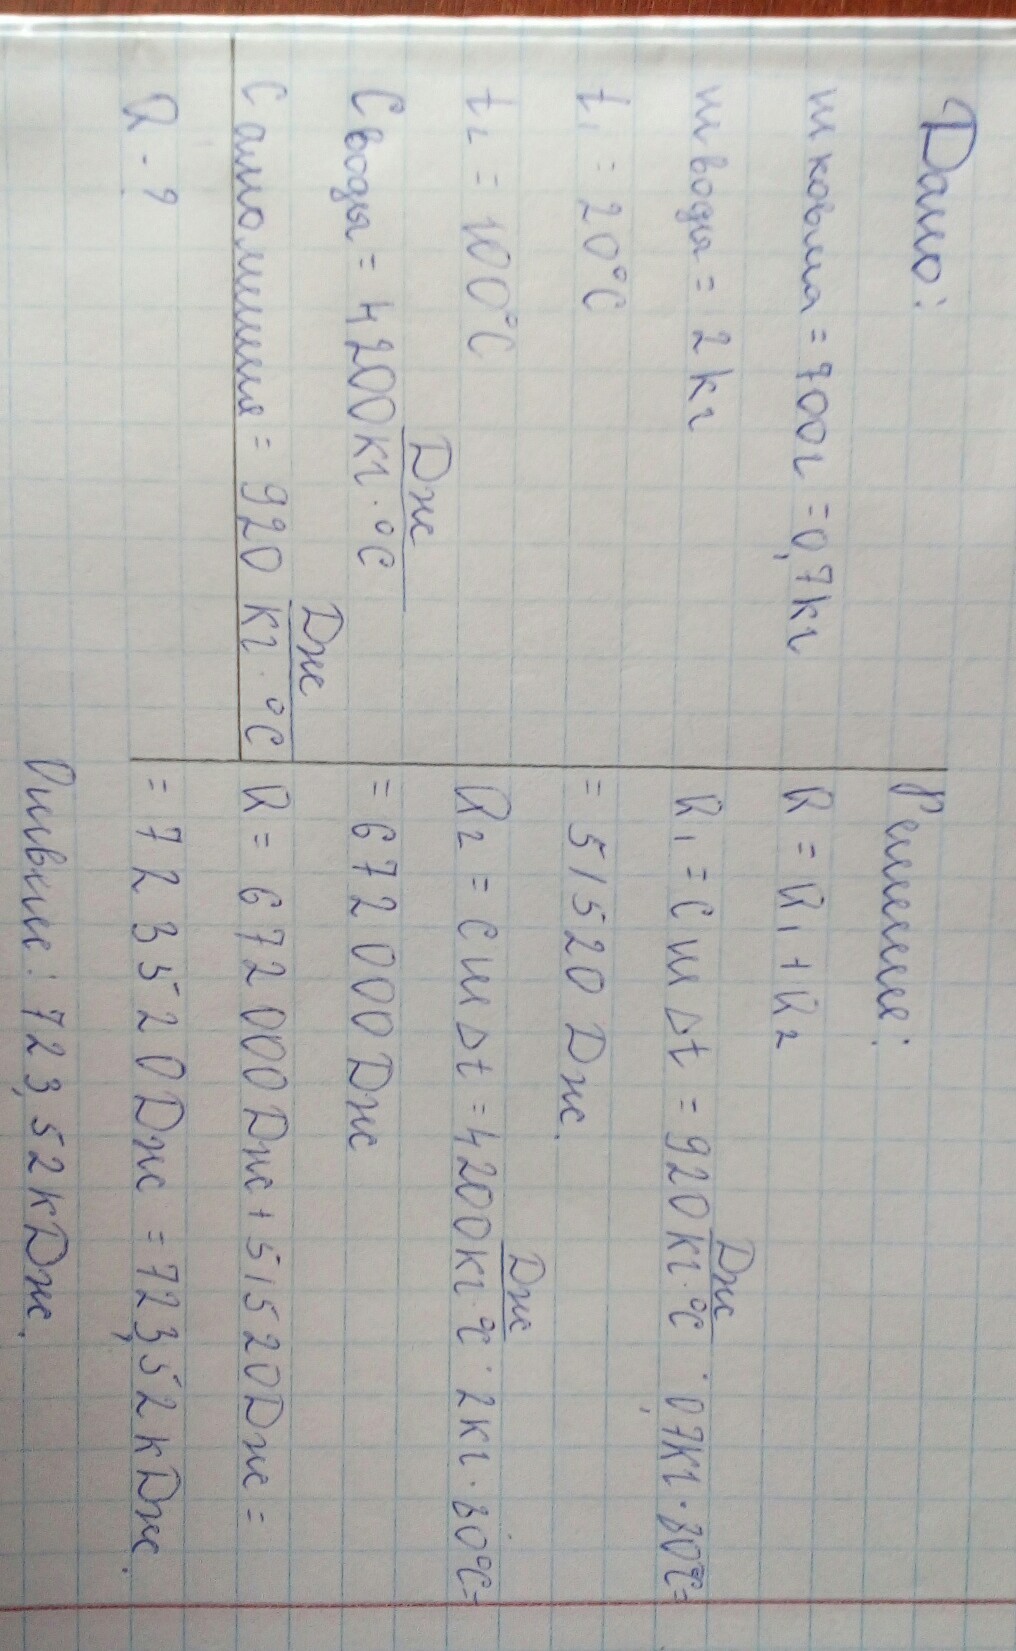 Дано:
m ковша = 700г = 0,7кг
m воды = 2 кг
t₁ = 20°C
t₂ = 100°C
C воды = 4200 Дж/кг·°C
C алюминия = 920 Дж/кг·°C
Q - ?
Решение:
Q = Q₁ + Q₂
Q₁ = c m Δt = 920 Дж/кг·°C · 0,7кг · 80°C =
= 51520 Дж.
Q₂ = c m Δt = 4200 Дж/кг·°C · 2кг · 80°C =
= 672000 Дж
Q = 672000 Дж + 51520 Дж =
= 723520 Дж = 723,52 кДж.
Ответ: 723,52 кДж.